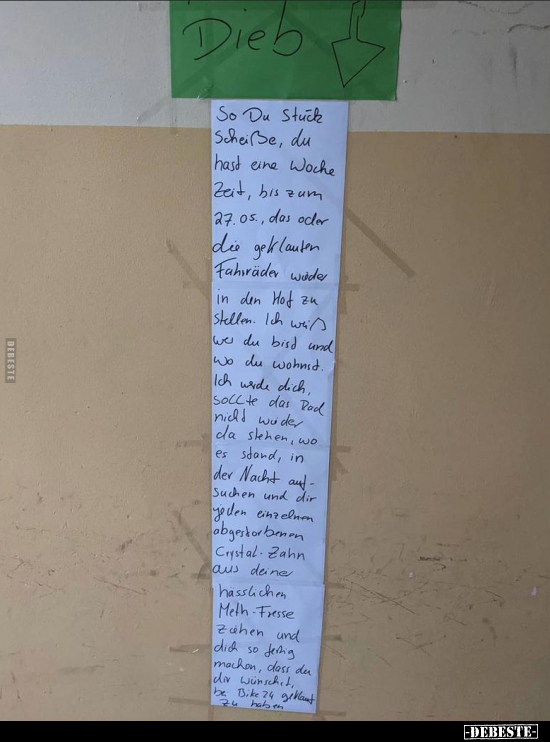 Dieb
So Du Stück
Scheiße, du
hast eine Woche
Zeit, bis zum
27.05., das oder
die geklauten
Fahrräder wieder
in den Hof zu
stellen. Ich weiß
wer du bist und
wo du wohnst.
Ich werde dich,
sollte das Rad
nicht wieder
da stehen, wo
es stand, in
der Nacht auf-
suchen und dir
jeden einzelnen
abgestorbenen
Crystal-Zahn
aus deiner
hässlichen
Meth-Fresse
ziehen und
dich so fertig
machen, dass du
dir wünschst,
bei Bike24 geklaut
zu haben
DEBESTE
-DEBESTE-